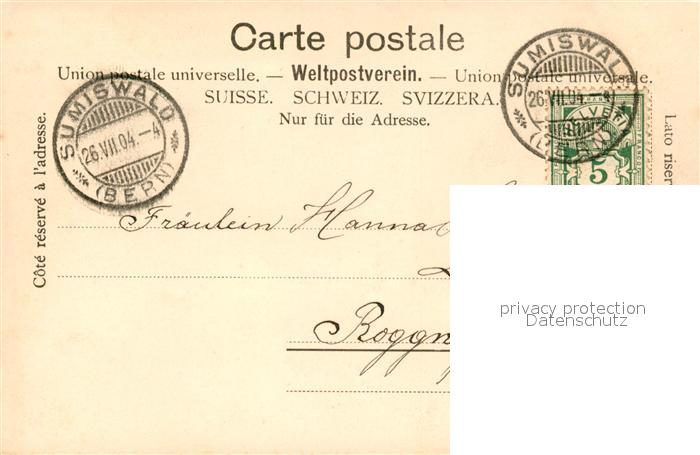 Carte postale
Union postale universelle. — Weltpostverein. — Union postale universale.
SUISSE. SCHWEIZ. SVIZZERA.
Nur für die Adresse.
Côté réservé à l'adresse.
Lato riser
SUMISWALD
26.VII.04.–4
(BERN)
SUMISWALD
26.VII.04.–4
(BERN)
HELVETIA
5
Fräulein Hanna
Roggn
privacy protection
Datenschutz